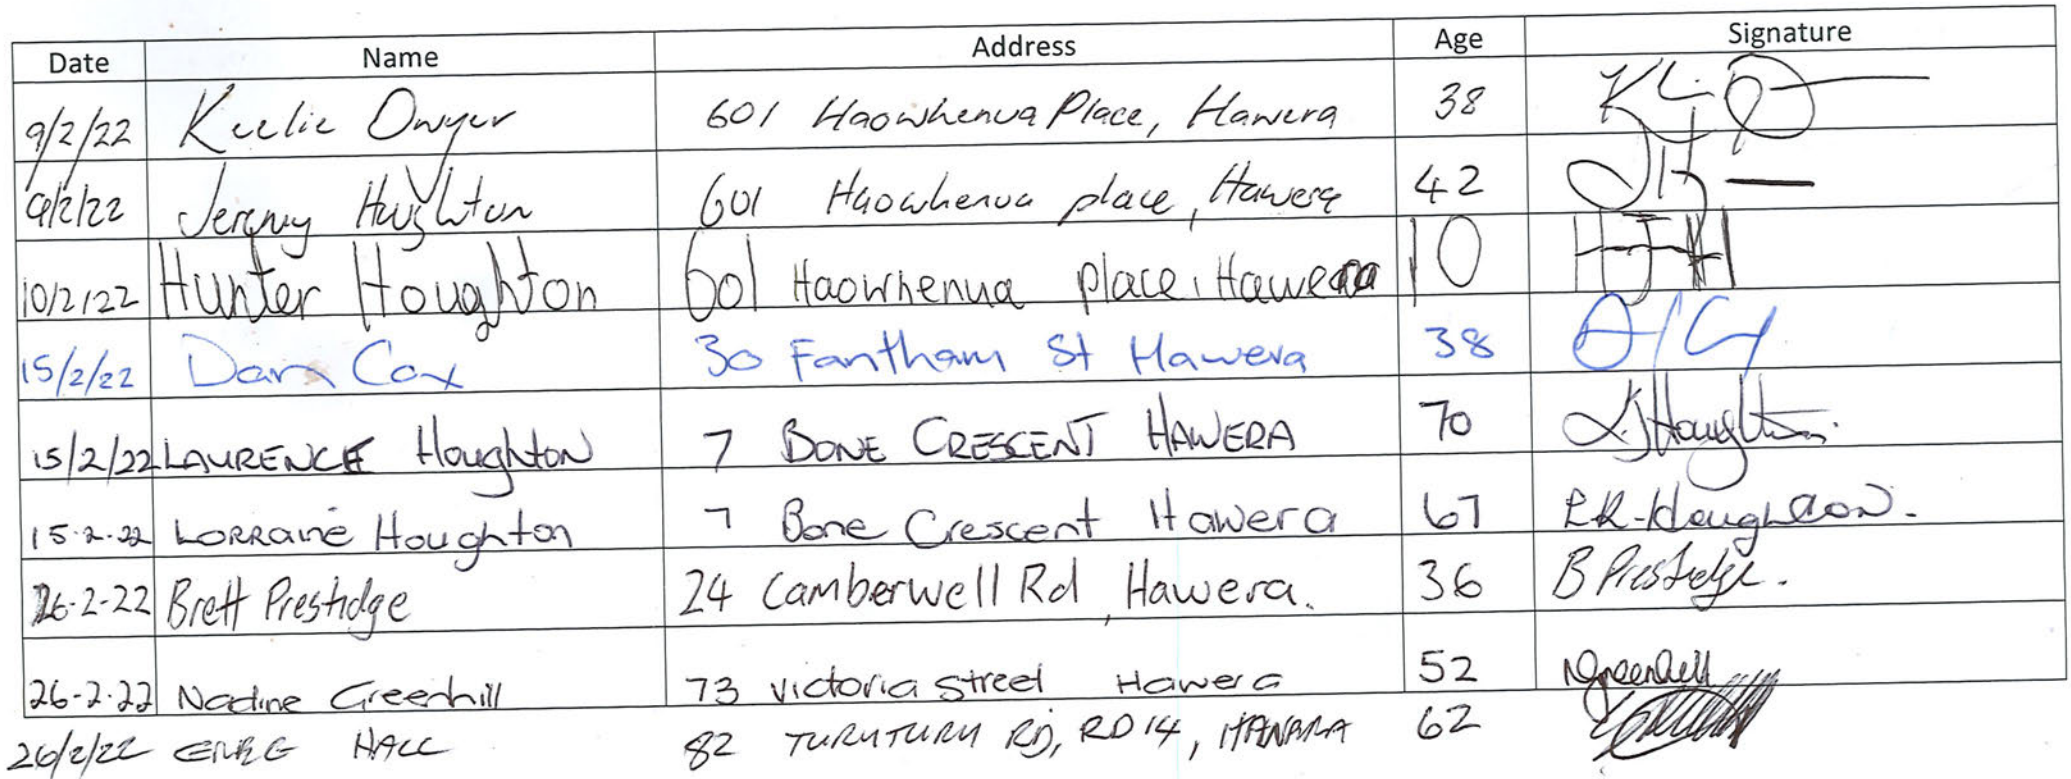 Date Name Address Age Signature
9/2/22 Keelie Dwyer 601 Haowhenua Place, Hawera 38
9/2/22 Jeremy Houghton 601 Haowhenua place, Hawera 42 JH
10/2/22 Hunter Houghton 601 Haowhenua place, Hawera 10 HJH
15/2/22 Dara Cox 30 Fantham St Hawera 38
15/2/22 LAURENCE Houghton 7 BONE CRESCENT HAWERA 70 LJHoughton.
15.2.22 LORRaine Houghton 7 Bone Crescent Hawera 67 LR-Houghton.
26-2-22 Brett Prestidge 24 Camberwell Rd, Hawera. 36 B Prestidge.
26-2-22 Nadine Greenhill 73 victoria street Hawera 52 NGreenhill
26/2/22 HALL 82 TURUTURU RD, RD 14, HAWARA 62